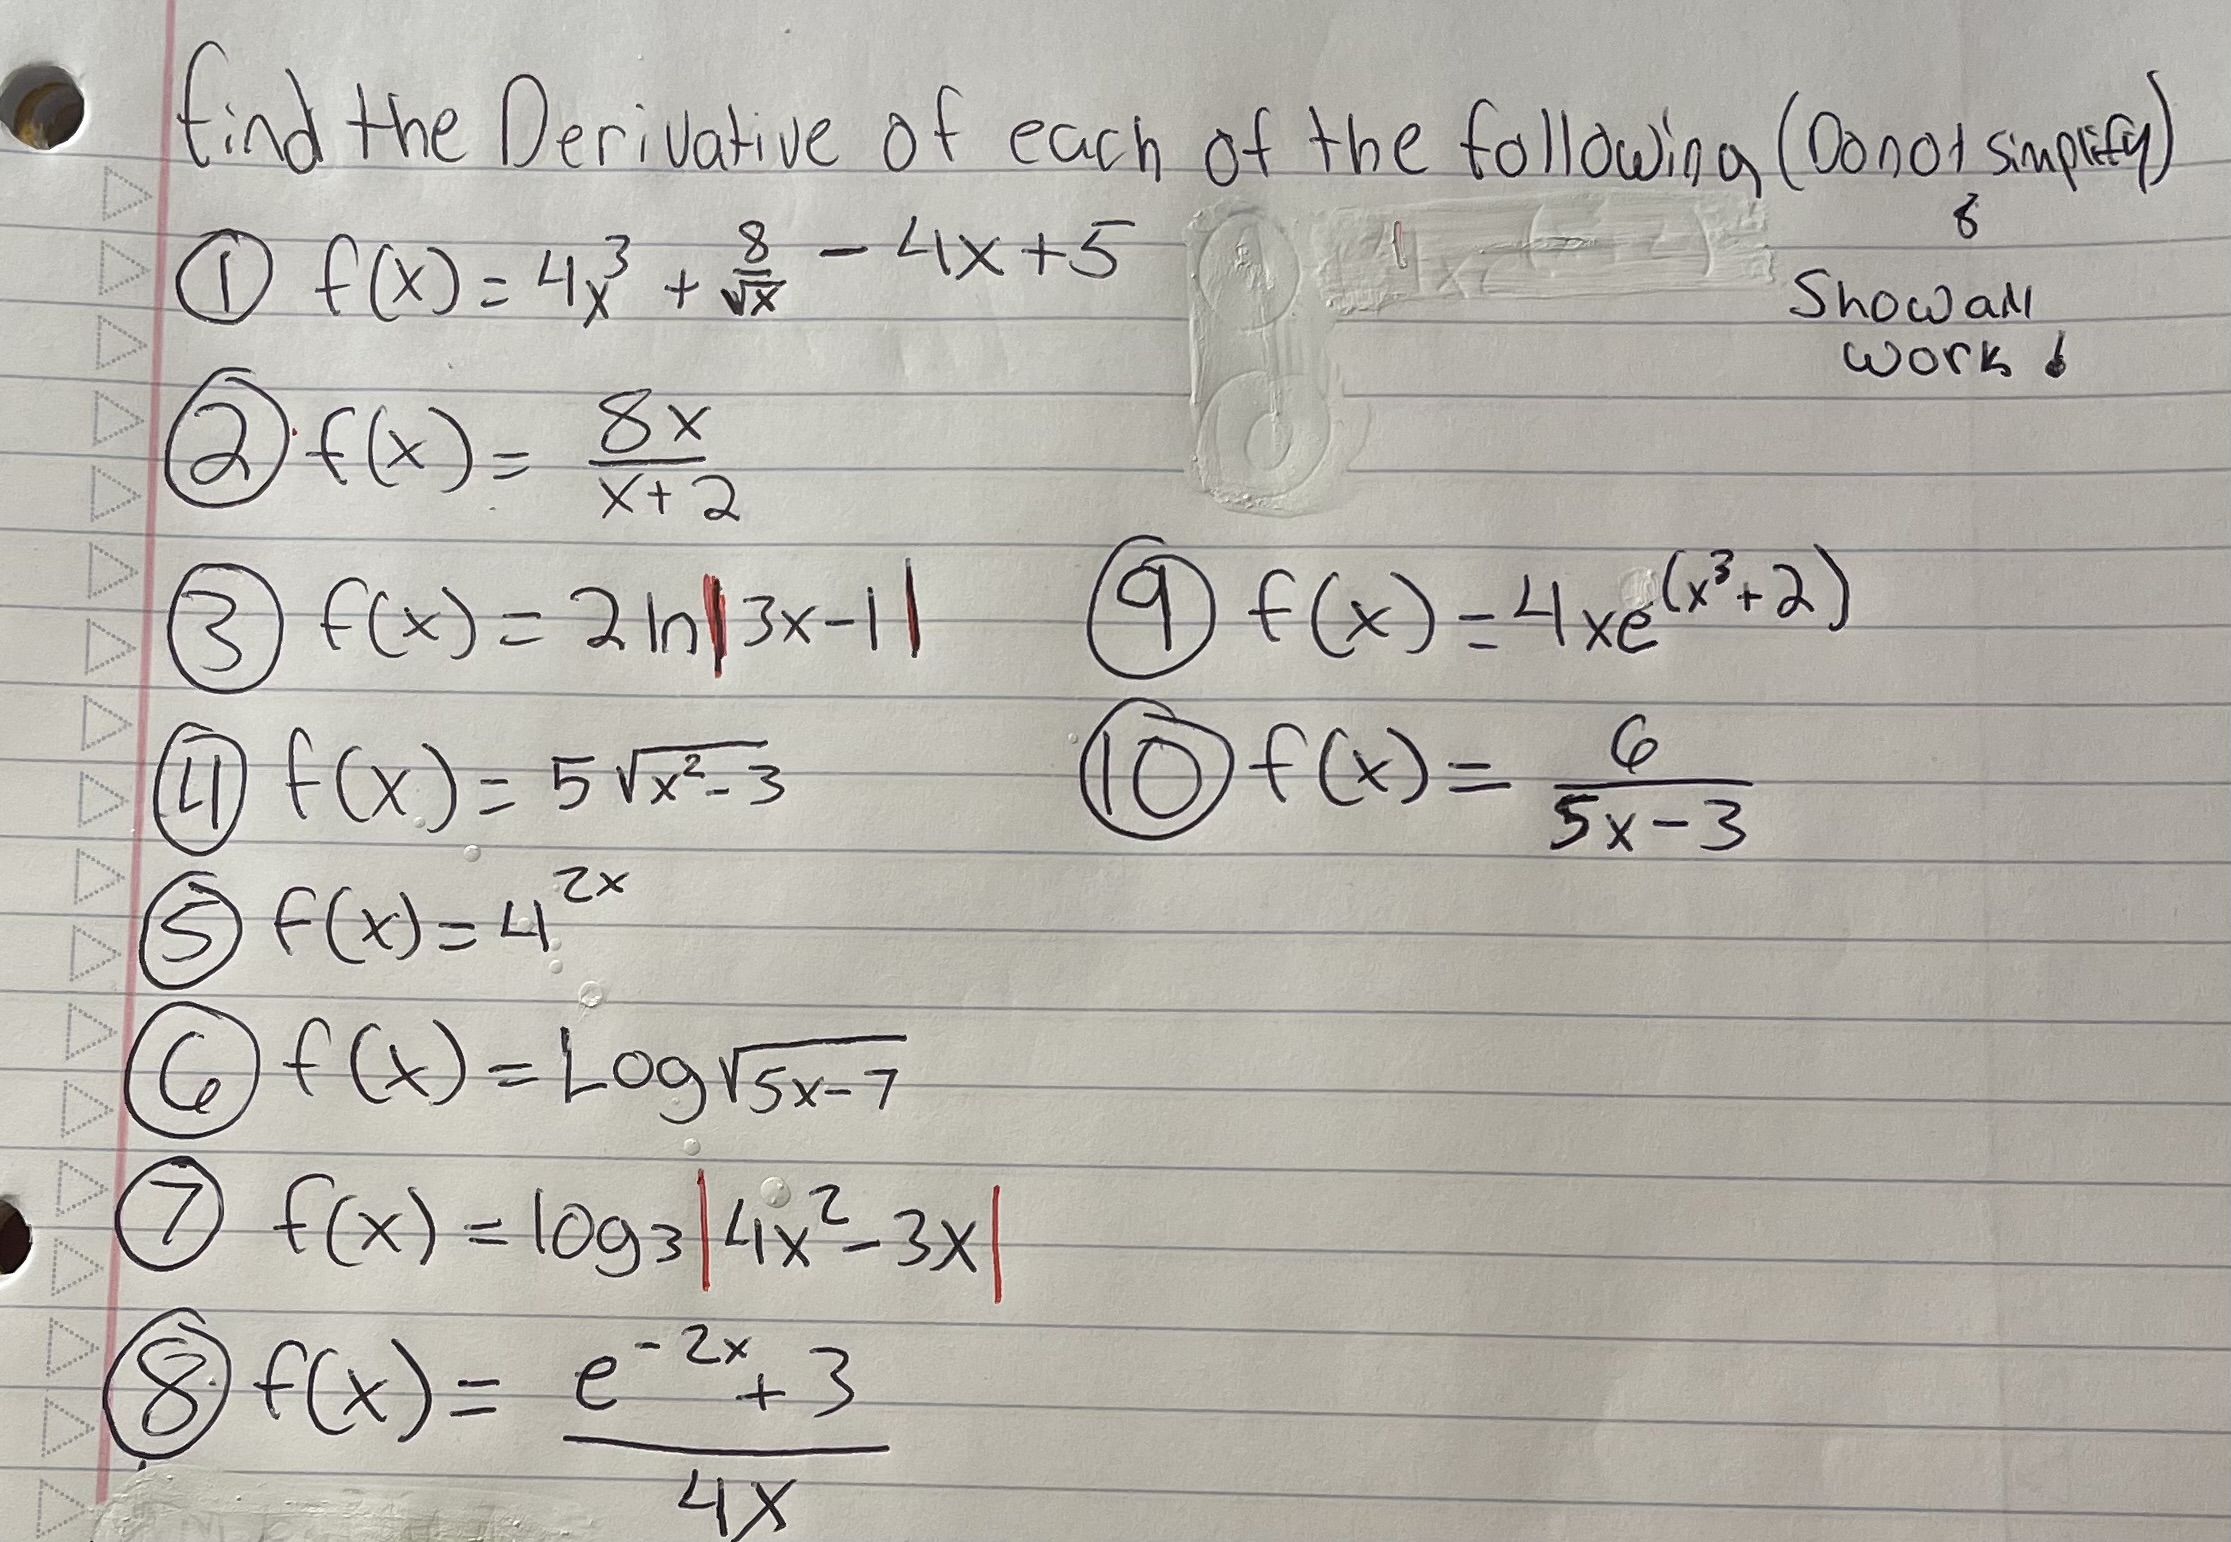 find the Derivative of each of the following (Do not simplify)
&
Show all
work !
① f(x) = 4x³ + 8/√x - 4x + 5
② f(x) = 8x/(x+2)
③ f(x) = 2 ln|3x-1|
④ f(x) = 5√(x²-3)
⑤ f(x) = 4^(2x)
⑥ f(x) = Log √(5x-7)
⑦ f(x) = log₃|4x²-3x|
⑧ f(x) = (e^(-2x) + 3)/(4x)
⑨ f(x) = 4xe^(x³+2)
⑩ f(x) = 6/(5x-3)